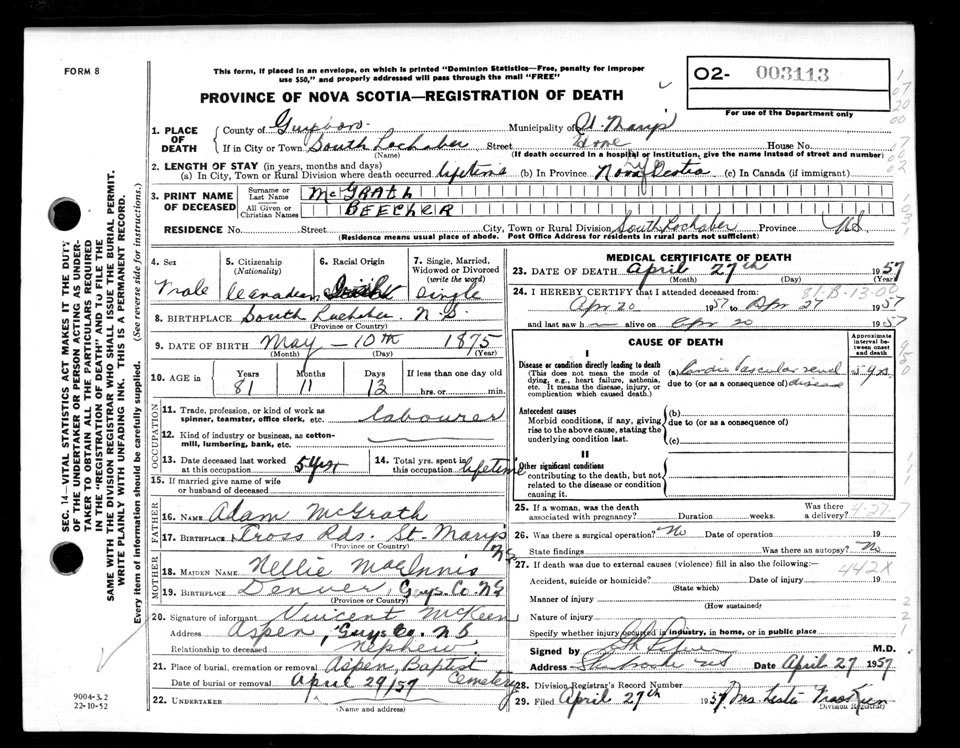 FORM 8
This form, if placed in an envelope, on which is printed "Dominion Statistics—Free, penalty for improper
use $50," and properly addressed will pass through the mail "FREE"
O2- 003113
For use of the Department only
PROVINCE OF NOVA SCOTIA—REGISTRATION OF DEATH
1. PLACE OF DEATH
County of Guysboro Municipality of St. Marys
If in City or Town South Lochaber Street Home House No.
(Name) (If death occurred in a hospital or institution, give the name instead of street and number)
2. LENGTH OF STAY (in years, months and days)
(a) In City, Town or Rural Division where death occurred lifetime (b) In Province Nova Scotia (c) In Canada (if immigrant)
3. PRINT NAME OF DECEASED
Surname or Last Name McGRATH
All Given or Christian Names BEECHER
RESIDENCE No. Street City, Town or Rural Division South Lochaber Province N.S.
(Residence means usual place of abode. Post Office Address for residents in rural parts not sufficient)
4. Sex 5. Citizenship (Nationality) 6. Racial Origin 7. Single, Married, Widowed or Divorced (write the word)
Male Canadian single
8. BIRTHPLACE South Lochaber N.S.
(Province or Country)
9. DATE OF BIRTH May - 10th 1875
(Month) (Day) (Year)
10. AGE in Years Months Days If less than one day
81 11 13 hrs. or min.
OCCUPATION
11. Trade, profession, or kind of work as spinner, teamster, office clerk, etc. labourer
12. Kind of industry or business, as cotton-mill, lumbering, bank, etc.
13. Date deceased last worked at this occupation 5 yrs
14. Total yrs. spent in this occupation lifetime
15. If married give name of wife or husband of deceased
FATHER
16. NAME Adam McGrath
17. BIRTHPLACE Cross Rds. St. Marys N.S.
(Province or Country)
MOTHER
18. MAIDEN NAME Nellie MacInnis
19. BIRTHPLACE Denver, Guys. Co. N.S.
(Province or Country)
20. Signature of informant Vincent McKeen
Address Aspen, Guys Co. N.S.
Relationship to deceased nephew
21. Place of burial, cremation or removal Aspen Baptist Cemetery
Date of burial or removal April 29/57
22. UNDERTAKER
(Name and address)
MEDICAL CERTIFICATE OF DEATH
23. DATE OF DEATH April 27th 1957
(Month) (Day) (Year)
24. I HEREBY CERTIFY that I attended deceased from: 81-B-13-00
Apr 20 1957 to Apr 27 1957
and last saw h alive on Apr 20 1957
CAUSE OF DEATH
Approximate interval between onset and death
I
Disease or condition directly leading to death
(This does not mean the mode of dying, e.g., heart failure, asthenia, etc. It means the disease, injury, or complication which caused death.)
(a) Cardio Vascular renal disease 5 yrs.
due to (or as a consequence of)
Antecedent causes
Morbid conditions, if any, giving rise to the above cause, stating the underlying condition last.
(b)
due to (or as a consequence of)
(c)
II
Other significant conditions
contributing to the death, but not related to the disease or condition causing it.
25. If a woman, was the death associated with pregnancy? Duration weeks. Was there a delivery? 4-27-7
26. Was there a surgical operation? No Date of operation 19
State findings Was there an autopsy? No
27. If death was due to external causes (violence) fill in also the following:— 442X
Accident, suicide or homicide? Date of injury 19
(State which)
Manner of injury
(How sustained)
Nature of injury
Specify whether injury occurred in industry, in home, or in public place
Signed by M.D.
Address Sherbrooke NS Date April 27 1957
28. Division Registrar's Record Number
29. Filed April 27th 1957 Mrs. Leslie MacKeen
Division Registrar
SEC. 14—VITAL STATISTICS ACT MAKES IT THE DUTY
OF THE UNDERTAKER OR PERSON ACTING AS UNDER-
TAKER TO OBTAIN ALL THE PARTICULARS REQUIRED
IN THE "REGISTRATION OF DEATH" AND TO FILE THE
SAME WITH THE DIVISION REGISTRAR WHO SHALL ISSUE THE BURIAL PERMIT.
WRITE PLAINLY WITH UNFADING INK. THIS IS A PERMANENT RECORD.
Every item of information should be carefully supplied. (See reverse side for instructions.)
9004-3.2
22-10-52